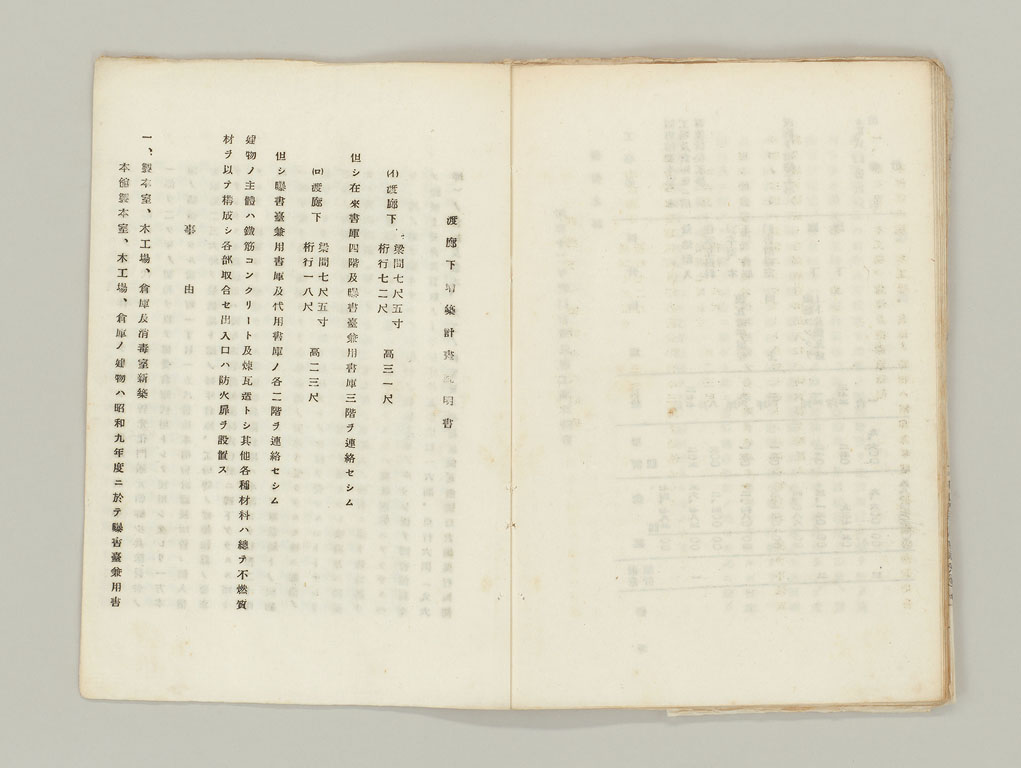 渡廊下増築計畫說明書
(イ)渡廊下 梁間七尺五寸 桁行七二尺 高三一尺
但シ在來書庫四階及曝書臺兼用書庫三階ヲ連絡セシム
(ロ)渡廊下 梁間七尺五寸 桁行一八尺 高二三尺
但シ曝書臺兼用書庫及代用書庫ノ各二階ヲ連絡セシム
建物ノ主體ハ鐵筋コンクリート及煉瓦造トシ其他各種材料ハ總テ不燃質
材ヲ以テ構成シ各部取合セ出入口ハ防火扉ヲ設置ス
事由
一、製本室、木工場、倉庫及消毒室新築
本館製本室、木工場、倉庫ノ建物ハ昭和九年度ニ於テ曝書臺兼用書